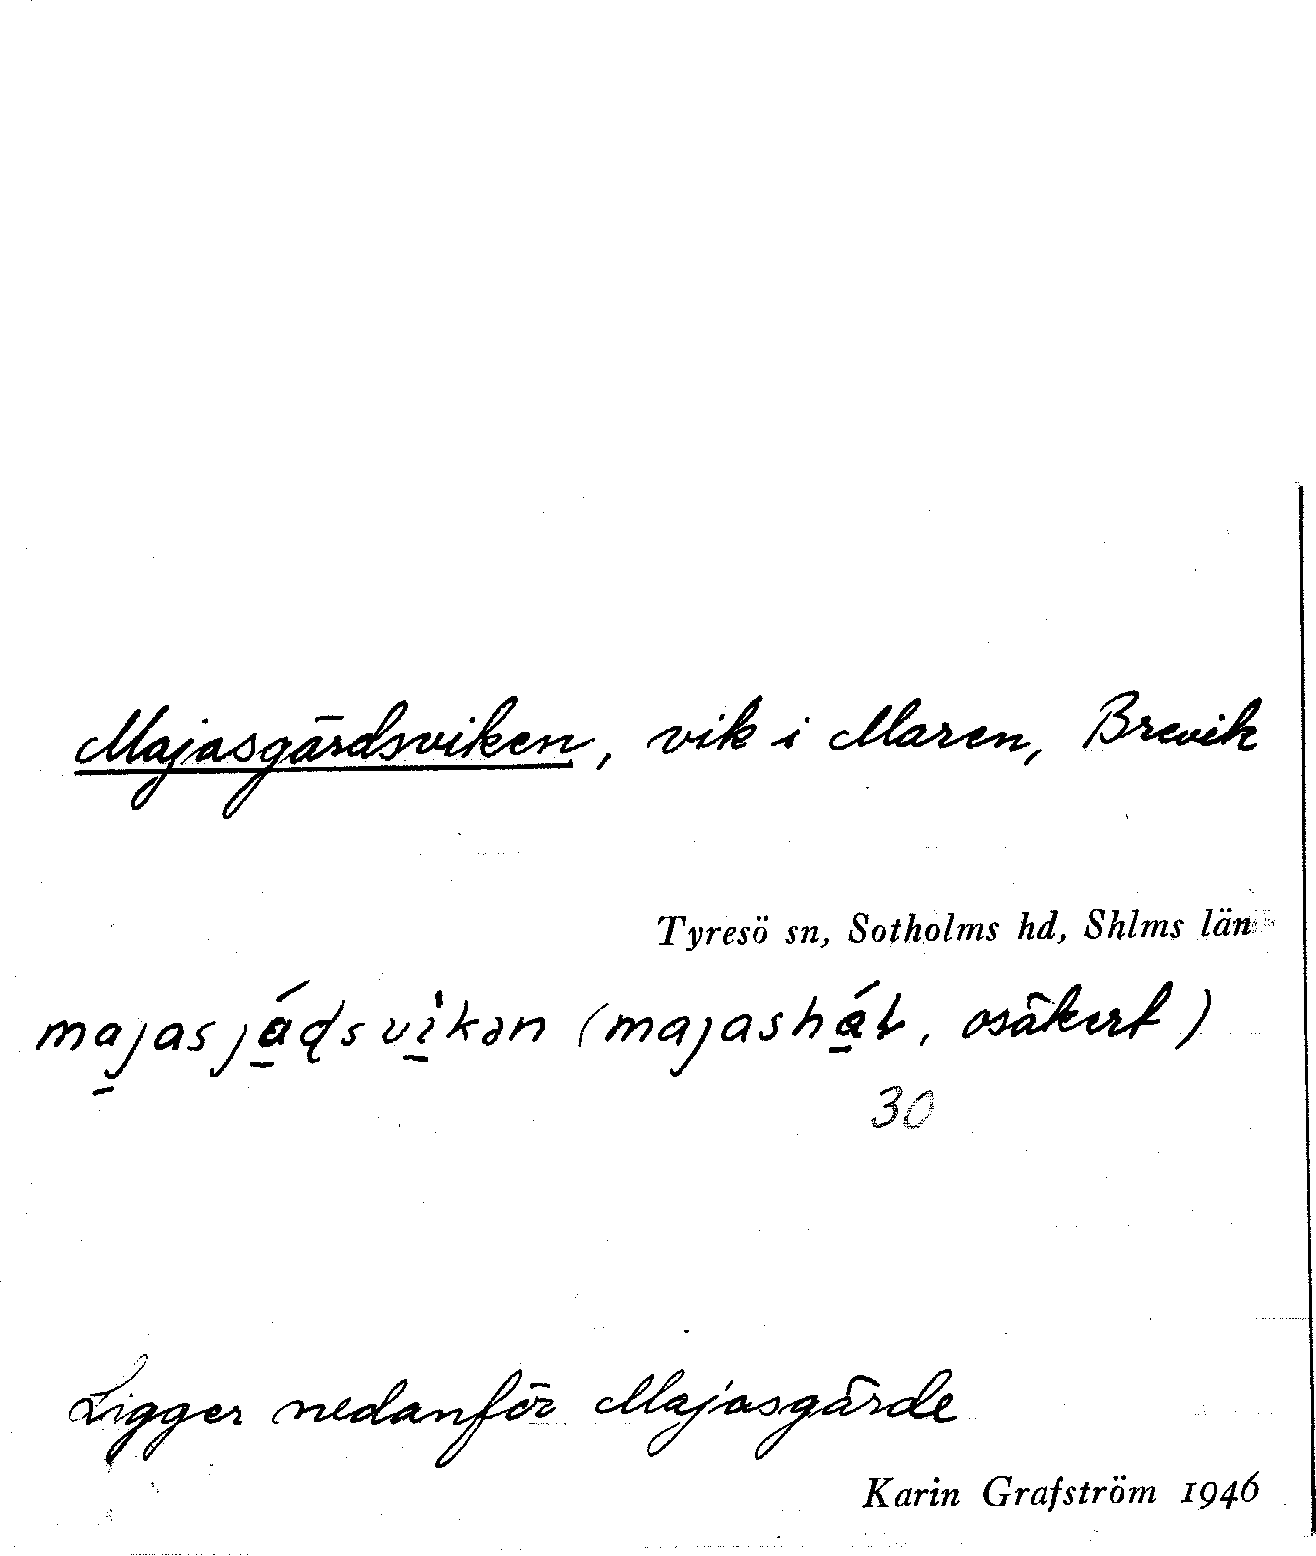 Majasgärdsviken, vik i Maren, Brevik
Tyresö sn, Sotholms hd, Shlms län
majasjáɖsvìkən (majashál, osäkert)
30
Ligger nedanför Majasgärde
Karin Grafström 1946